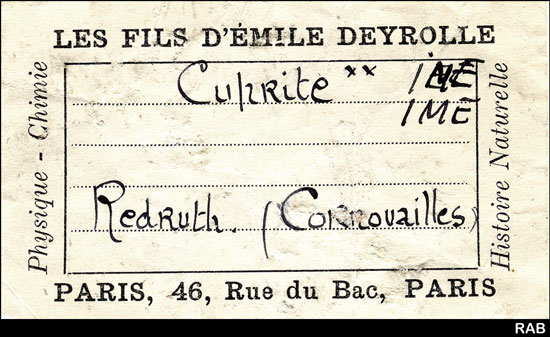 LES FILS D'ÉMILE DEYROLLE
Physique - Chimie
Cuprite ** IME
IME
Redruth. (Cornouailles)
Histoire Naturelle
PARIS, 46, Rue du Bac, PARIS
RAB